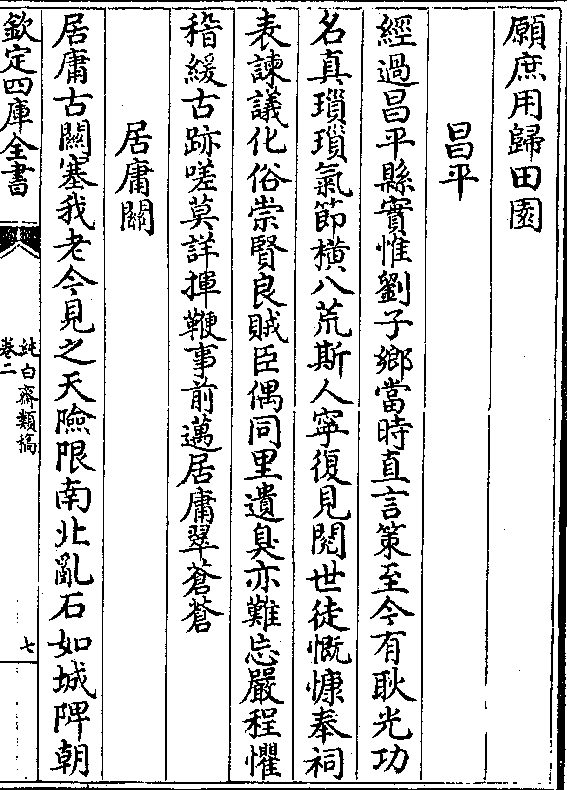 願庶用歸田園
昌平
經過昌平縣實惟劉子鄉當時直言策至今有耿光功
名真瑣瑣氣節橫八荒斯人寧復見閱世徒慨慷奉祠
表諫議化俗崇賢良賊臣偶同里遺臭亦難忘嚴程懼
稽緩古跡嗟莫詳揮鞭事前邁居庸翠蒼蒼
居庸關
居庸古關塞我老今見之天險限南北亂石如城陴朝
欽定四庫全書
純白齋類稿
卷二
七